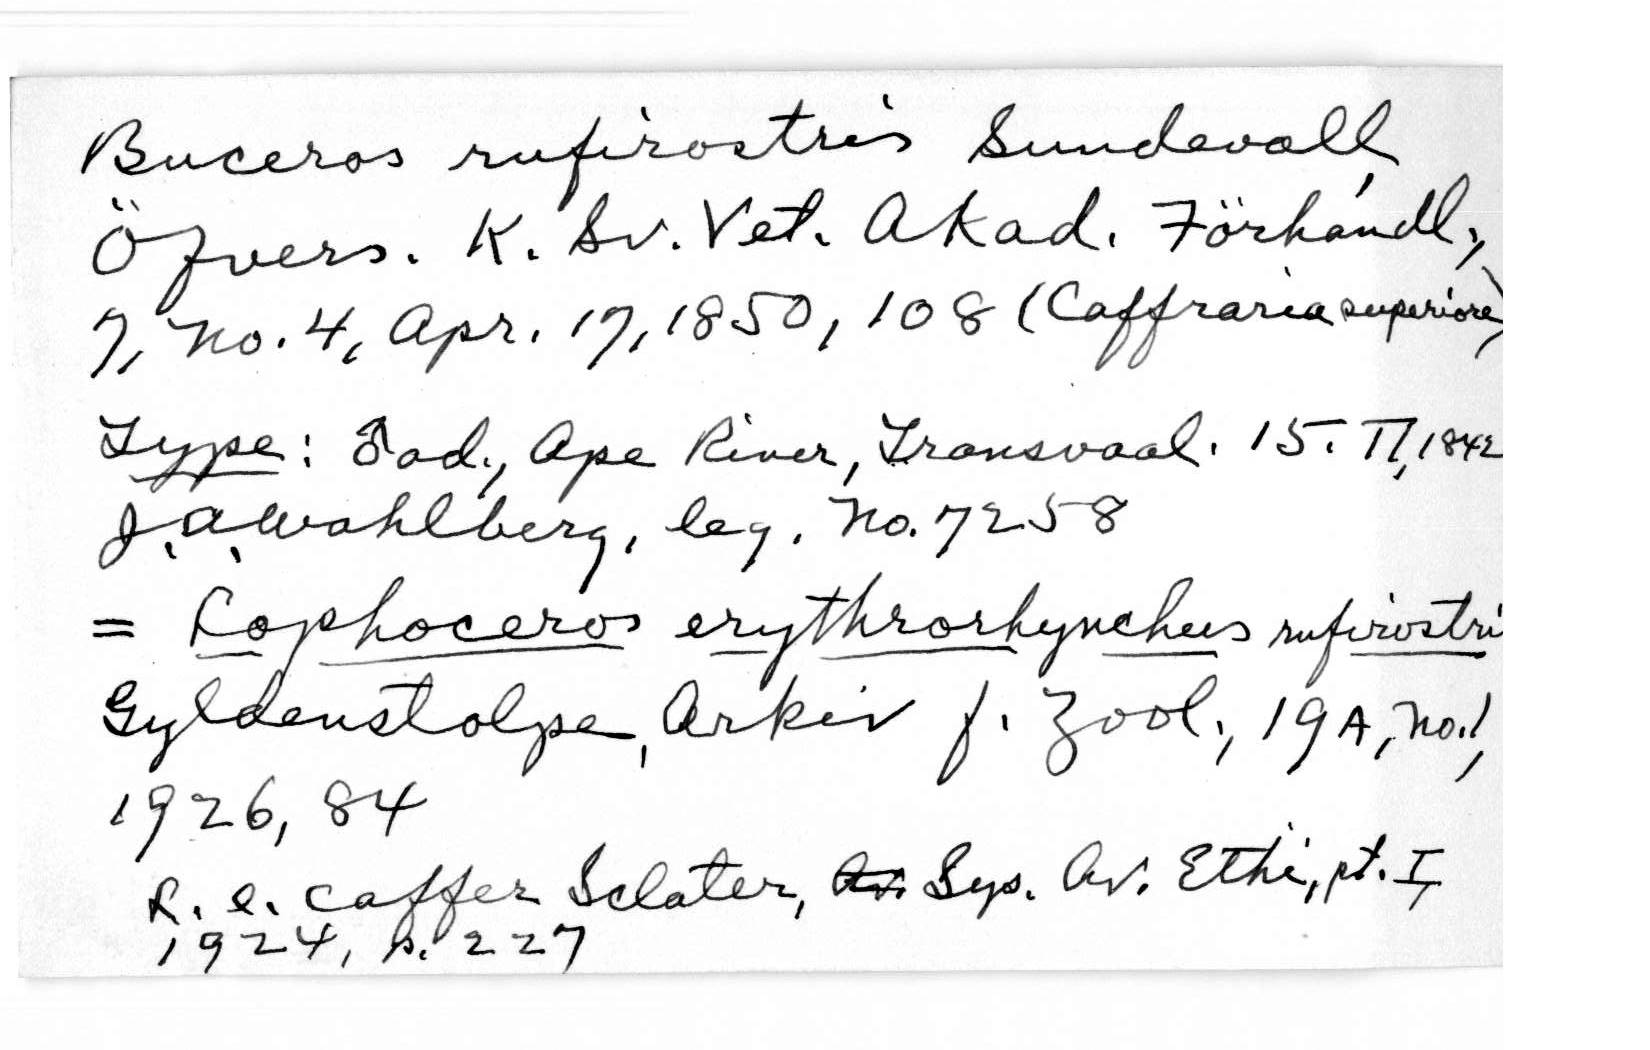 Buceros rufirostris Sundevall,
Öfvers. K. Sv. Vet. Akad. Förhandl.,
7, No. 4, Apr. 17, 1850, 108 (Caffraria superiore)
Type: ♂ ad., Ape River, Transvaal. 15. II, 1842
J. A. Wahlberg, leg. No. 7258
= Lophoceros erythrorhynchus rufirostri
Gyldenstolpe, Arkiv f. Zool., 19A, No. 1,
1926, 84
L. e. caffer Sclater, Av. Sys. Av. Ethi, pt. I,
1924, p. 227